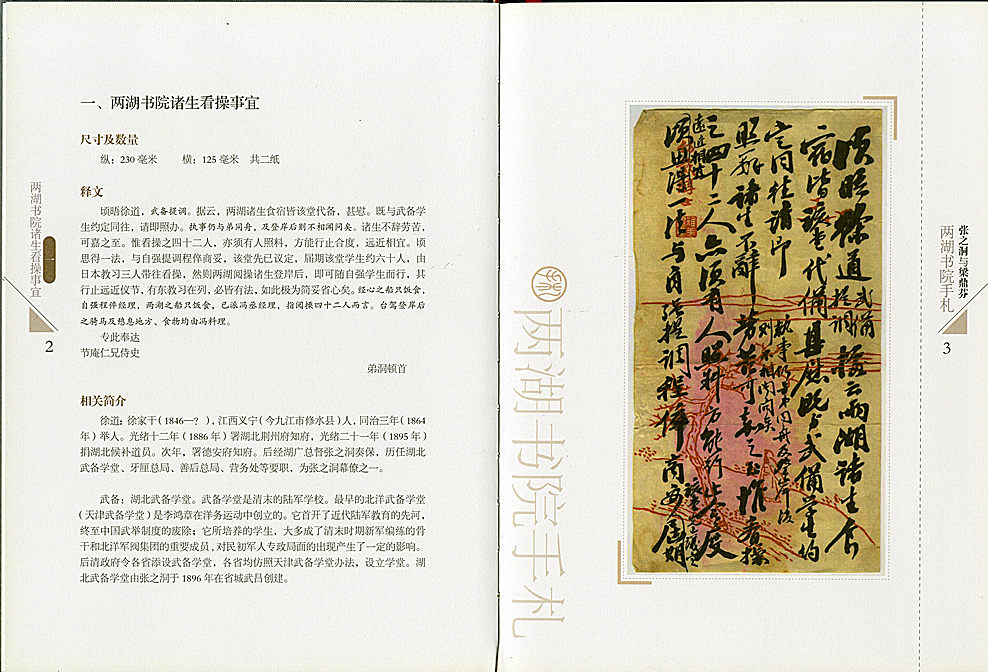 一、两湖书院诸生看操事宜
尺寸及数量
纵：230 毫米　　横：125 毫米　共二纸
释文
顷晤徐道，武备提调。据云，两湖诸生食宿皆该堂代备，甚慰。既与武备学
生约定同往，请即照办。执事仍与弟同舟，及登岸后则不相闻问矣。诸生不辞劳苦，
可嘉之至。惟看操之四十二人，亦须有人照料，方能行止合度，远近相宜。顷
思得一法，与自强提调程倅商妥，该堂先已议定，届期该堂学生约六十人，由
日本教习三人带往看操，然则两湖阅操诸生登岸后，即可随自强学生而行，其
行止远近仪节，有东教习在列，必皆有法，如此极为简妥省心矣。经心之船只饭食，
自强程倅经理，两湖之船只饭食，已派冯丞经理，指阅操四十二人而言。台驾登岸后
之骑马及憩息地方、食物均由冯料理。
专此奉达
节庵仁兄侍史
弟洞顿首
相关简介
徐道：徐家干（1846—？），江西义宁（今九江市修水县）人，同治三年（1864
年）举人。光绪十二年（1886 年）署湖北荆州府知府，光绪二十一年（1895 年）
捐湖北候补道员。次年，署德安府知府。后经湖广总督张之洞奏保，历任湖北
武备学堂、牙厘总局、善后总局、营务处等要职，为张之洞幕僚之一。
武备：湖北武备学堂。武备学堂是清末的陆军学校。最早的北洋武备学堂
（天津武备学堂）是李鸿章在洋务运动中创立的。它首开了近代陆军教育的先河，
终至中国武举制度的废除；它所培养的学生，大多成了清末时期新军编练的骨
干和北洋军阀集团的重要成员，对民初军人专政局面的出现产生了一定的影响。
后清政府令各省添设武备学堂，各省均仿照天津武备学堂办法，设立学堂。湖
北武备学堂由张之洞于 1896 年在省城武昌创建。
两湖书院诸生看操事宜
一
2
顷晤徐道武备提调据云两湖诸生食
宿皆该堂代备甚慰既与武备学生约
定同往请即
照办执事仍与弟同舟及登岸后则不相闻问矣诸生不辞劳苦可嘉之至惟看操
之四十二人亦须有人照料方能行止合度
远近相宜
顷思得一法与自强提调程倅商妥该堂先已议定届期
两湖书院手札
张之洞与梁鼎芬
两湖书院手札
3